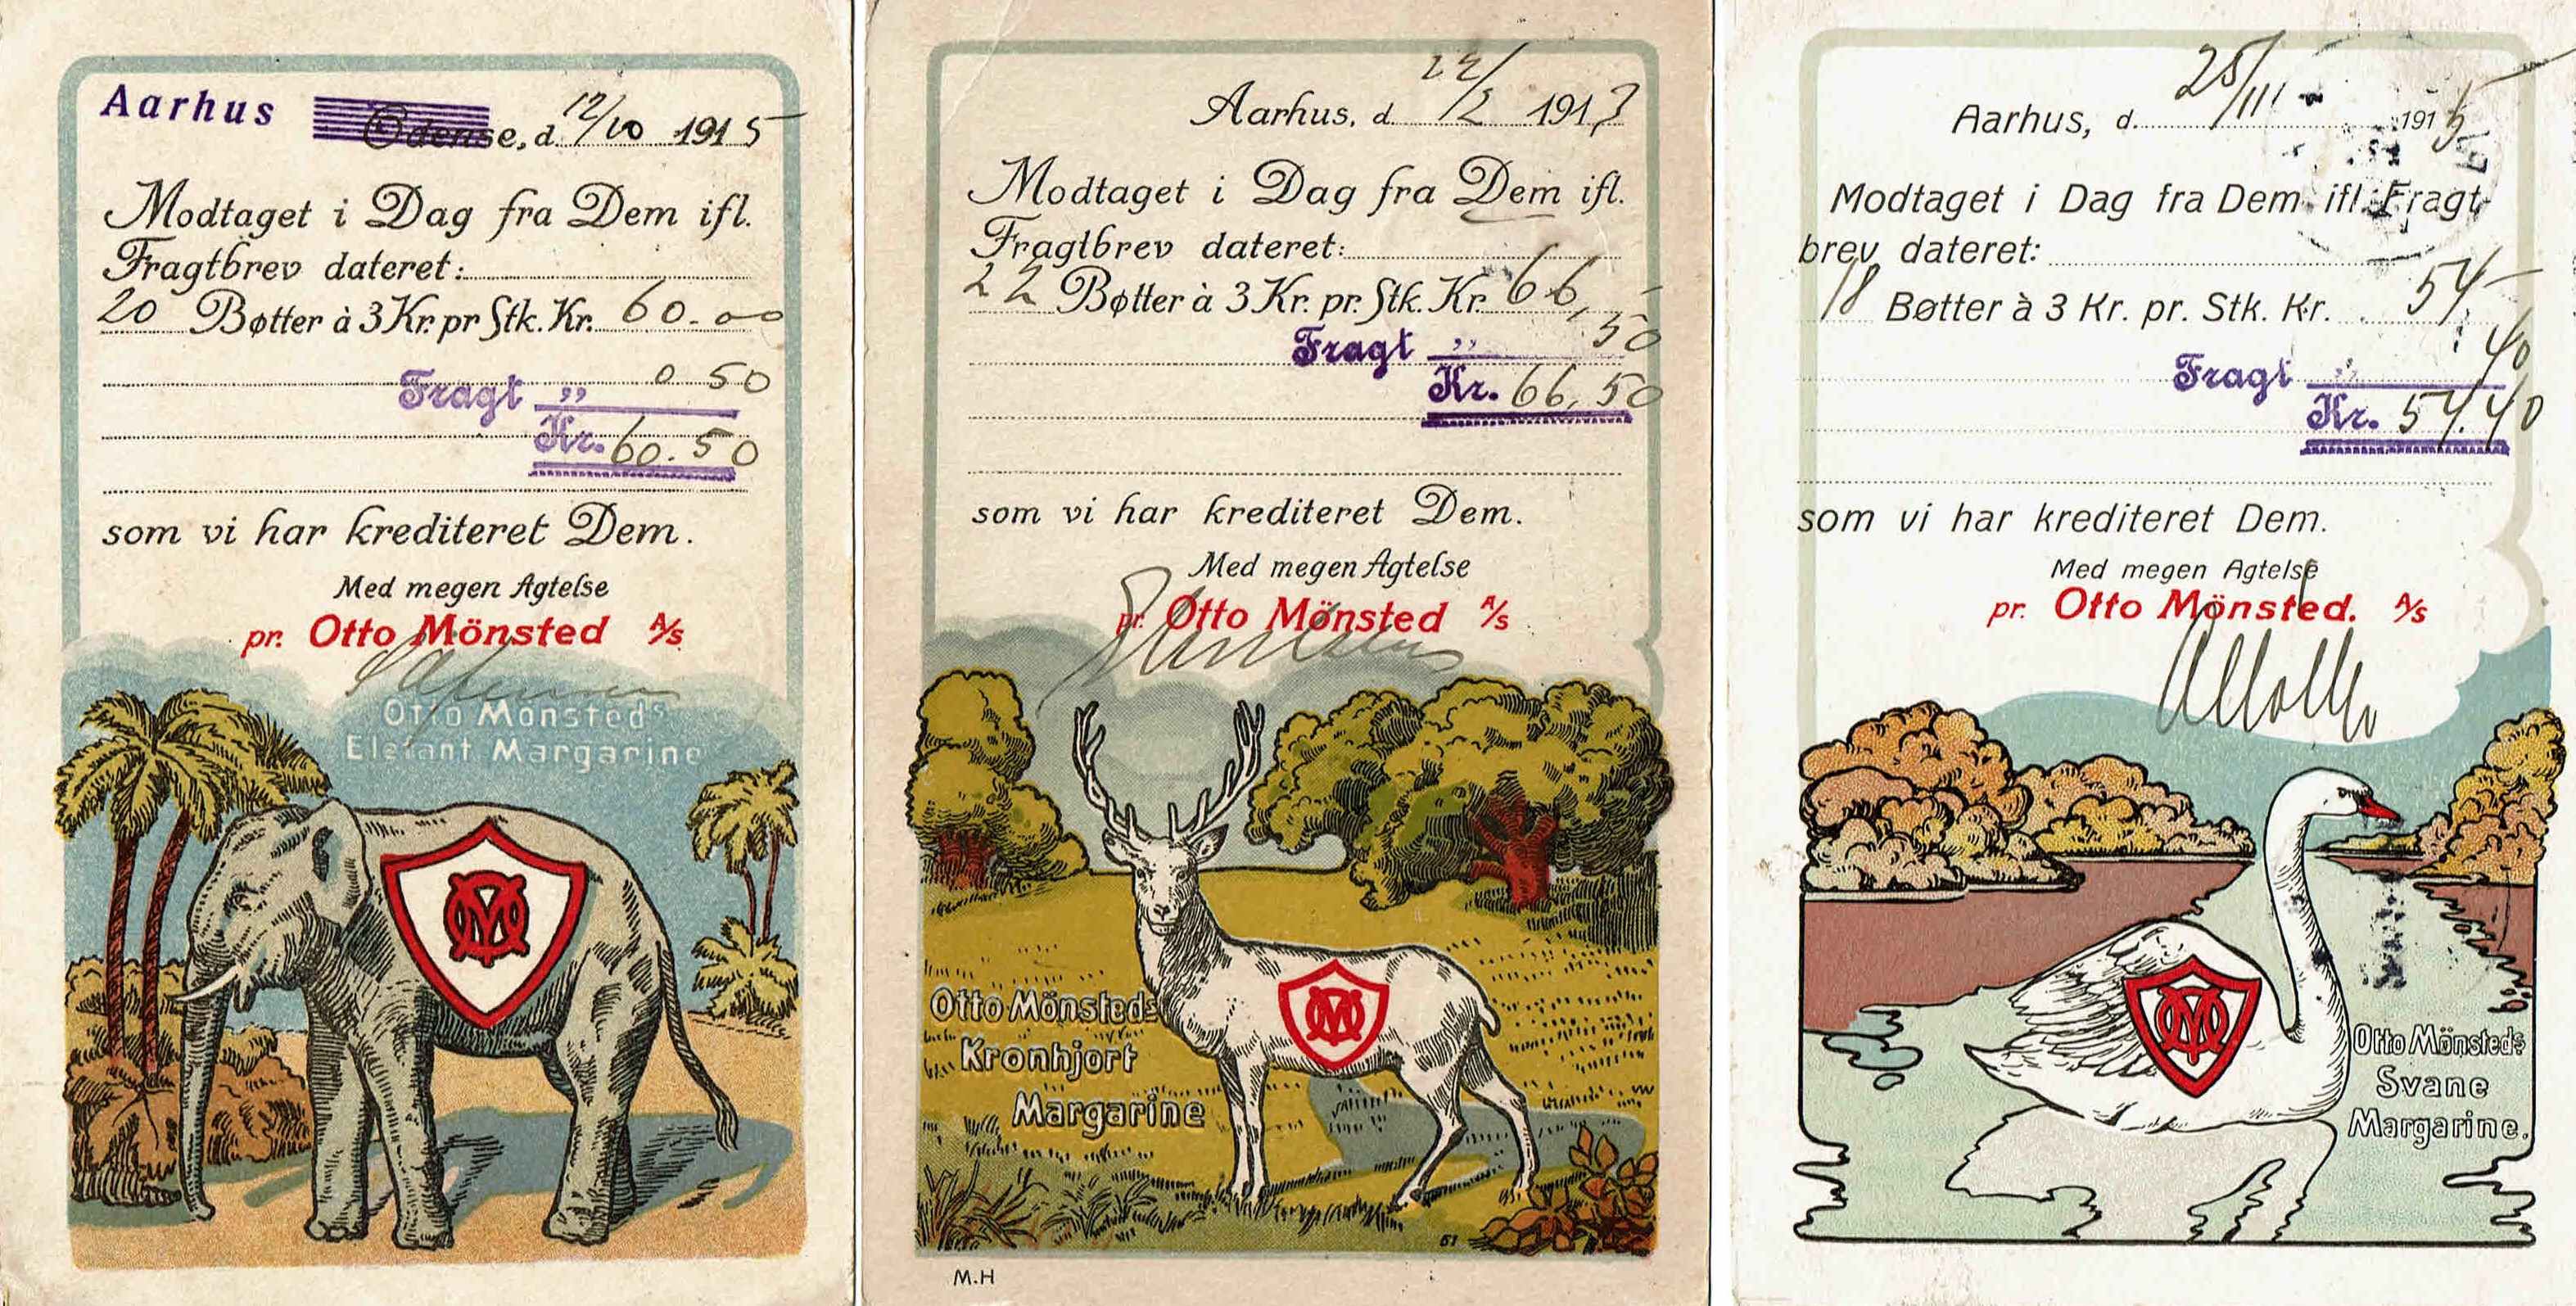 Aarhus Odense, d. 12/10 1915
Modtaget i Dag fra Dem ifl.
Fragtbrev dateret:
20 Bøtter à 3 Kr. pr Stk. Kr. 60.00
Fragt „ 0 50
Kr. 60.50
som vi har krediteret Dem.
Med megen Agtelse
pr. Otto Mönsted A/S
Otto Mönsteds
Elefant Margarine
OM
Aarhus, d. 22/2 1917
Modtaget i Dag fra Dem ifl.
Fragtbrev dateret:
22 Bøtter à 3 Kr. pr. Stk. Kr. 66,
Fragt „ 50
Kr. 66,50
som vi har krediteret Dem.
Med megen Agtelse
pr. Otto Mönsted A/S
Otto Mönsteds
Kronhjort
Margarine
OM
61
M.H
Aarhus, d. 25/11 1915
Modtaget i Dag fra Dem ifl. Fragt
brev dateret:
18 Bøtter à 3 Kr. pr. Stk. Kr. 54
Fragt „ 40
Kr. 54.40
som vi har krediteret Dem.
Med megen Agtelse
pr. Otto Mönsted. A/S
OM
Otto Mönsteds
Svane
Margarine.